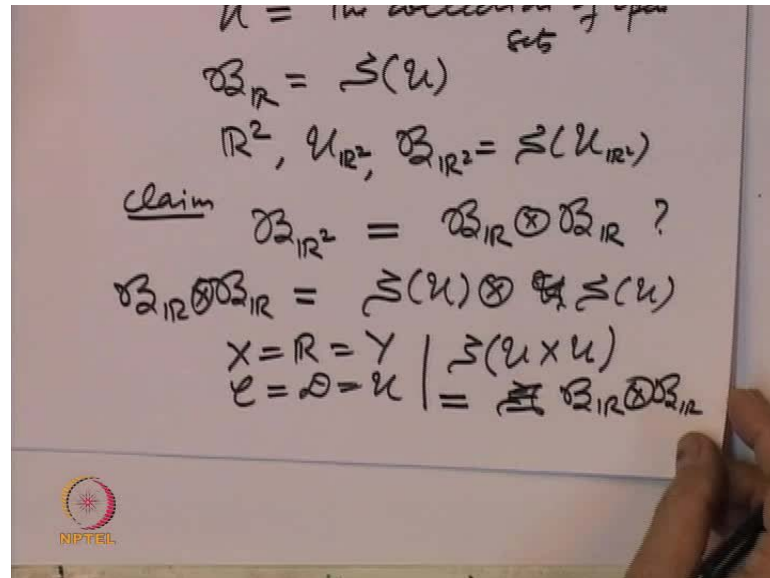 U = The collection of open
sets
𝔅_ℝ = S(U)
ℝ², U_ℝ², 𝔅_ℝ² = S(U_ℝ²)
Claim 𝔅_ℝ² = 𝔅_ℝ ⊗ 𝔅_ℝ ?
𝔅_ℝ ⊗ 𝔅_ℝ = S(U) ⊗ S(U)
X = ℝ = Y | S(U × U)
C = D = U | = 𝔅_ℝ ⊗ 𝔅_ℝ
NPTEL